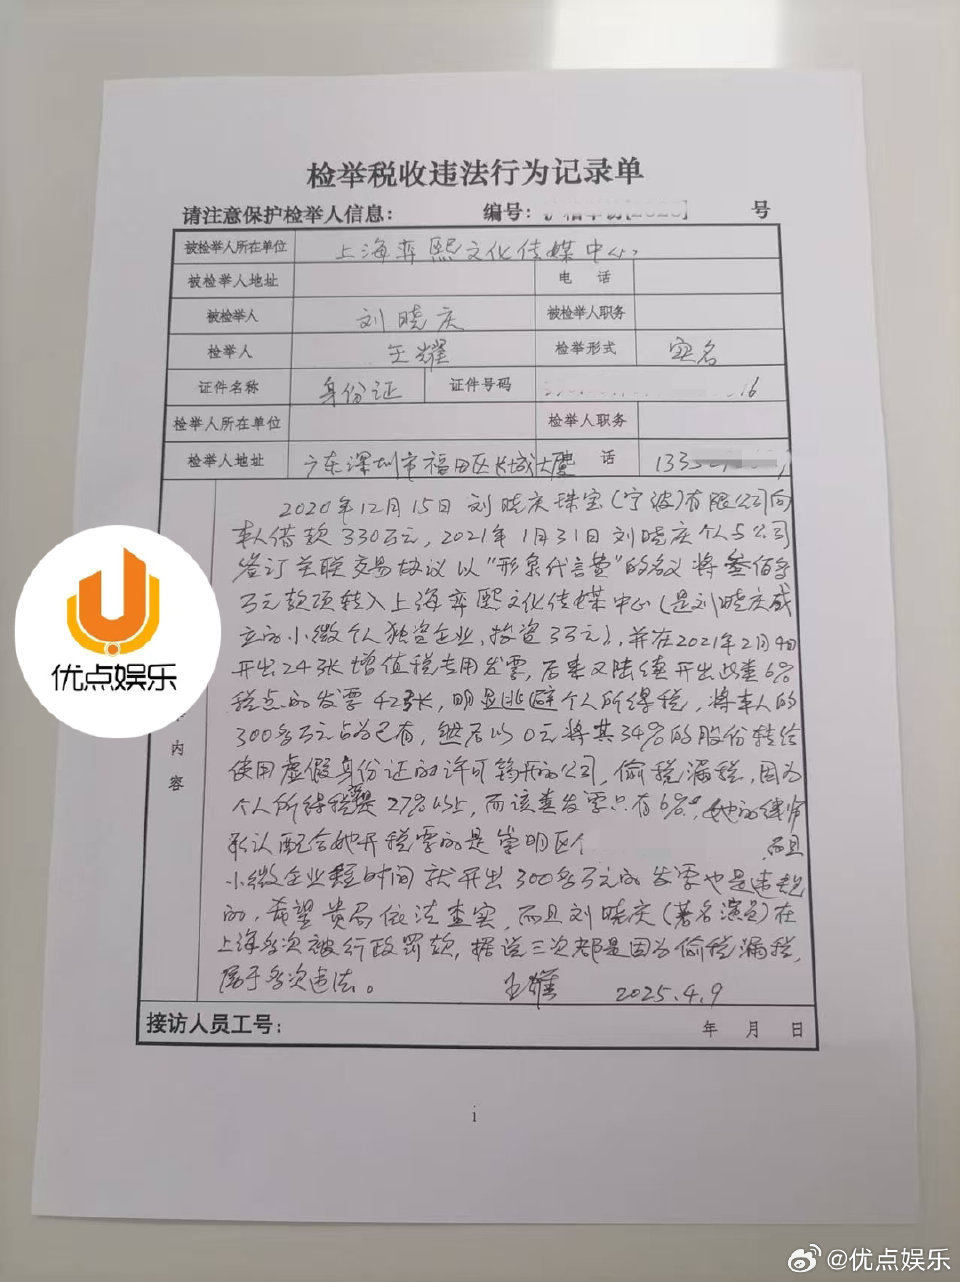 检举税收违法行为记录单
请注意保护检举人信息： 编号： 号
被检举人所在单位 上海弈熙文化传媒中心
被检举人地址 电 话
被检举人 刘晓庆 被检举人职务
检举人 王耀 检举形式 实名
证件名称 身份证 证件号码 16
检举人所在单位 检举人职务
检举人地址 广东深圳市福田区长城大厦 话 133
2020年12月15日刘晓庆珠宝(宁波)有限公司向
本人借款330万元，2021年1月31日刘晓庆个人与公司
签订关联交易协议以"形象代言费"的名义将叁佰多
万元款项转入上海弈熙文化传媒中心(是刘晓庆成
立的小微个人独资企业，投资3万元)，并在2021年2月4日
开出24张增值税专用发票，后来又陆续开出此类6%
税点的发票42张，明显逃避个人所得税，将本人的
300多万元占为己有，然后以0元将其34%的股份转给
使用虚假身份证的许可筠开的公司，偷税漏税，因为
个人所得税是27%以上，而该类发票只有6%，她的律师
承认配合她开税票的是崇明区个 而且
小微企业短时间就开出300多万元的发票也是违规
的，希望贵局依法查实，而且刘晓庆(著名演员)在
上海多次被行政罚款，据说三次都是因为偷税漏税，
属于多次违法。 王耀 2025.4.9
内
容
接访人员工号： 年 月 日
1
优点娱乐
@优点娱乐